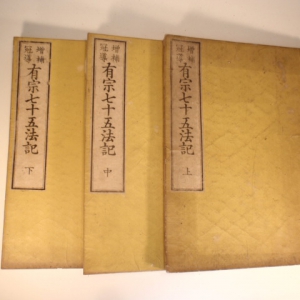 増補
冠導
有宗七十五法記
上
増補
冠導
有宗七十五法記
中
増補
冠導
有宗七十五法記
下